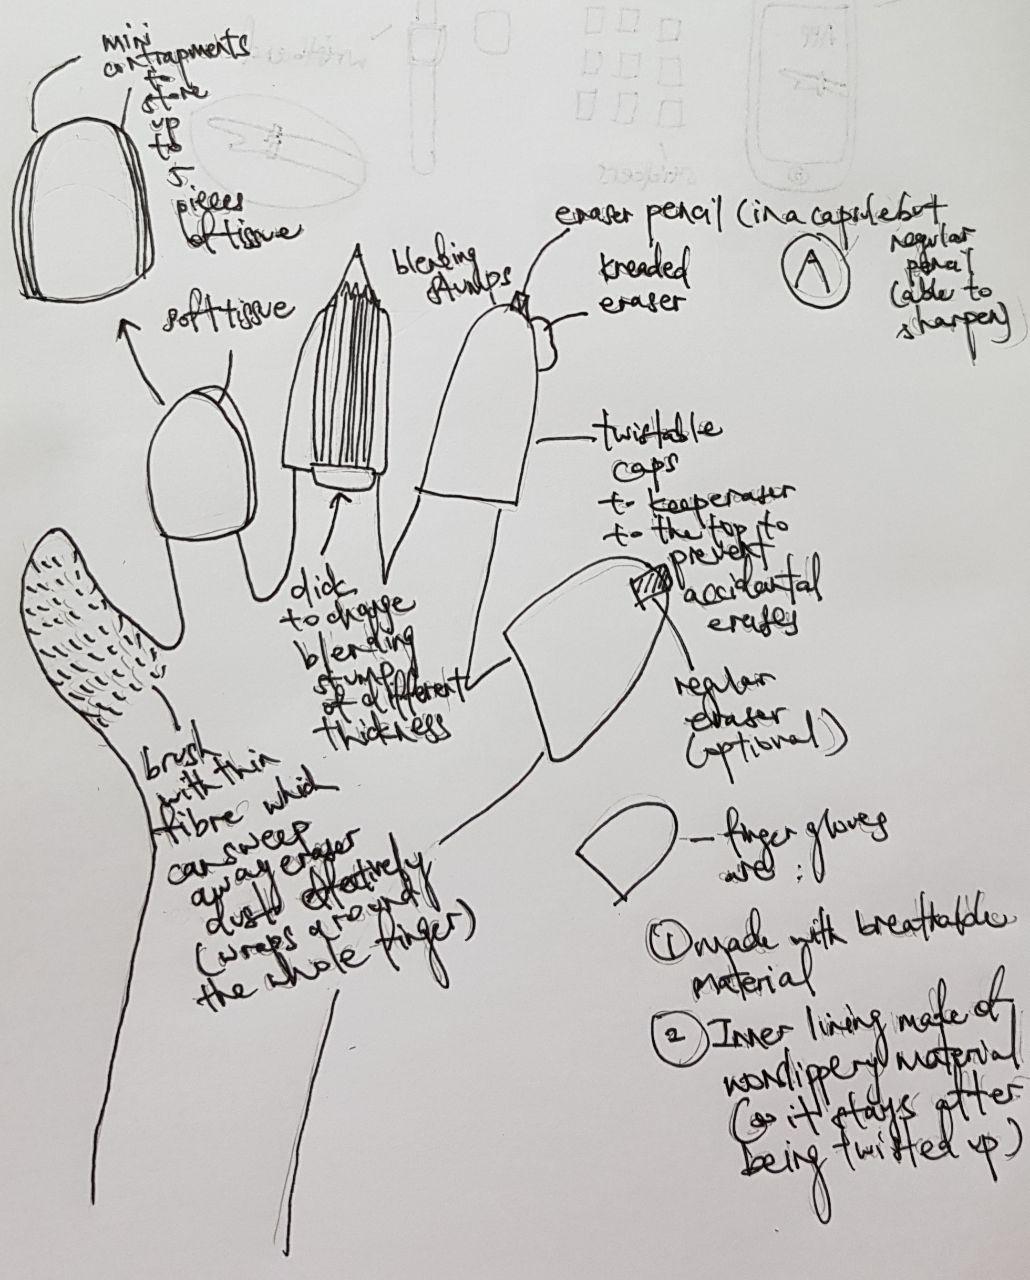 mini
contrapments
to
store
up
to
5
pieces
of tissue
soft tissue
blending
stumps
eraser pencil (in a capsule but
regular
pencil
(able to
sharpen)
A
kneaded
eraser
twistable
caps
to keep eraser
to the top to
prevent
accidental
erases
click
to change
blending
stump
of different
thickness
regular
eraser
(optional)
brush
with thin
fibre which
can sweep
away eraser
dust effectively
(wraps around
the whole finger)
finger gloves
are :
① made with breathable
material
② Inner lining made of
nonslippery material
(so it stays after
being twisted up)